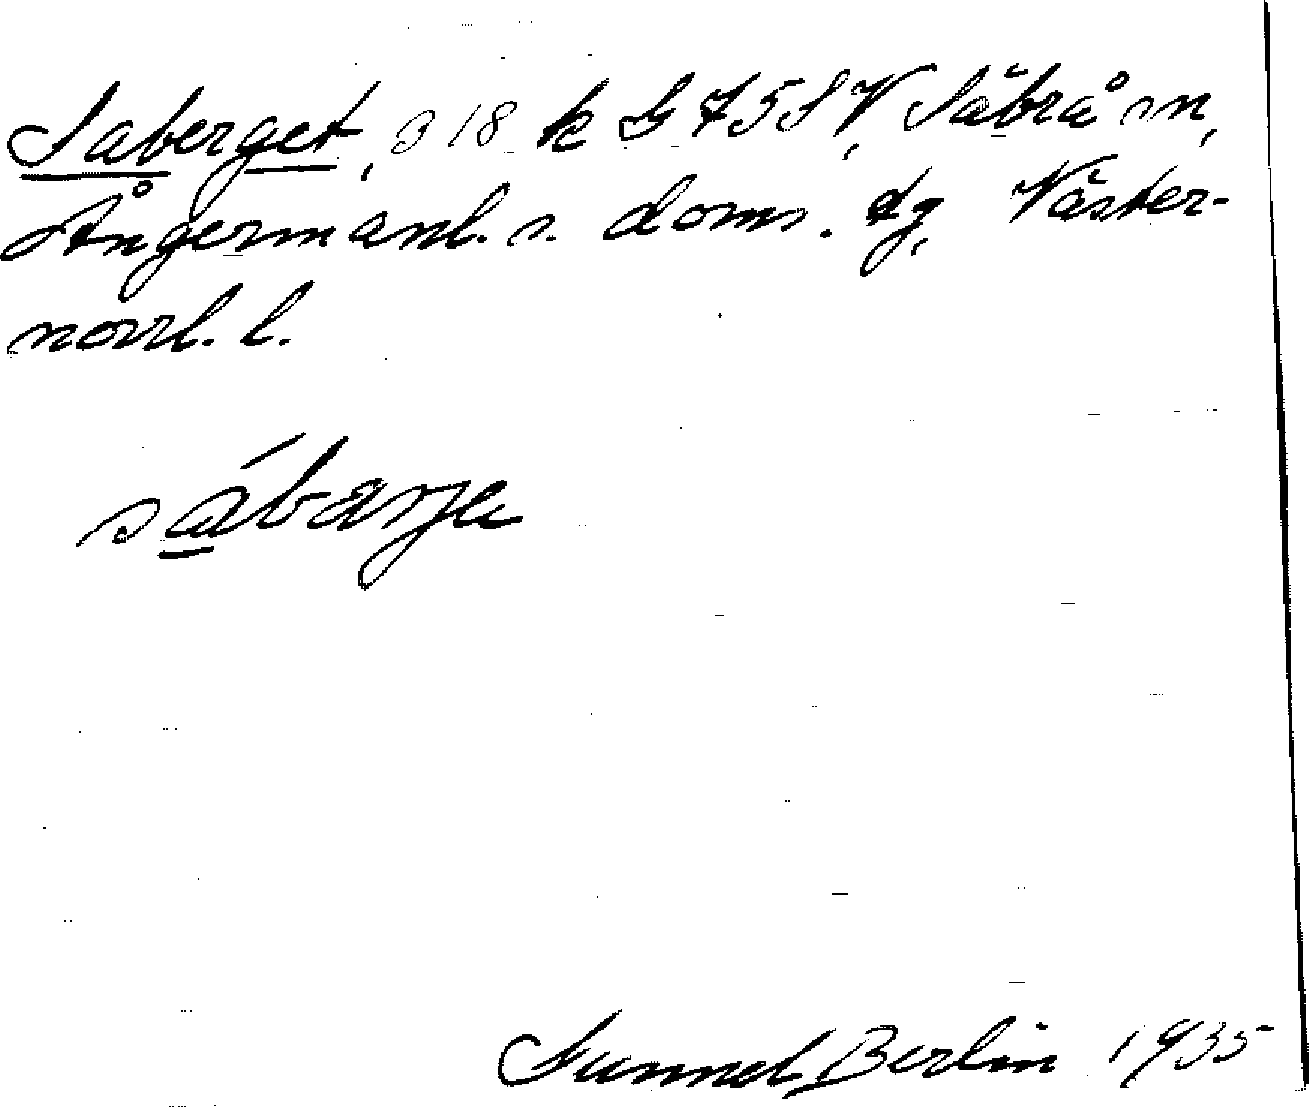 Saberget, 318 k G 75 S V, Säbrå sn,
Ångermanl. s. doms. dg, Väster-
norrl. l.
sábarje
Gunnel Berlin 1935